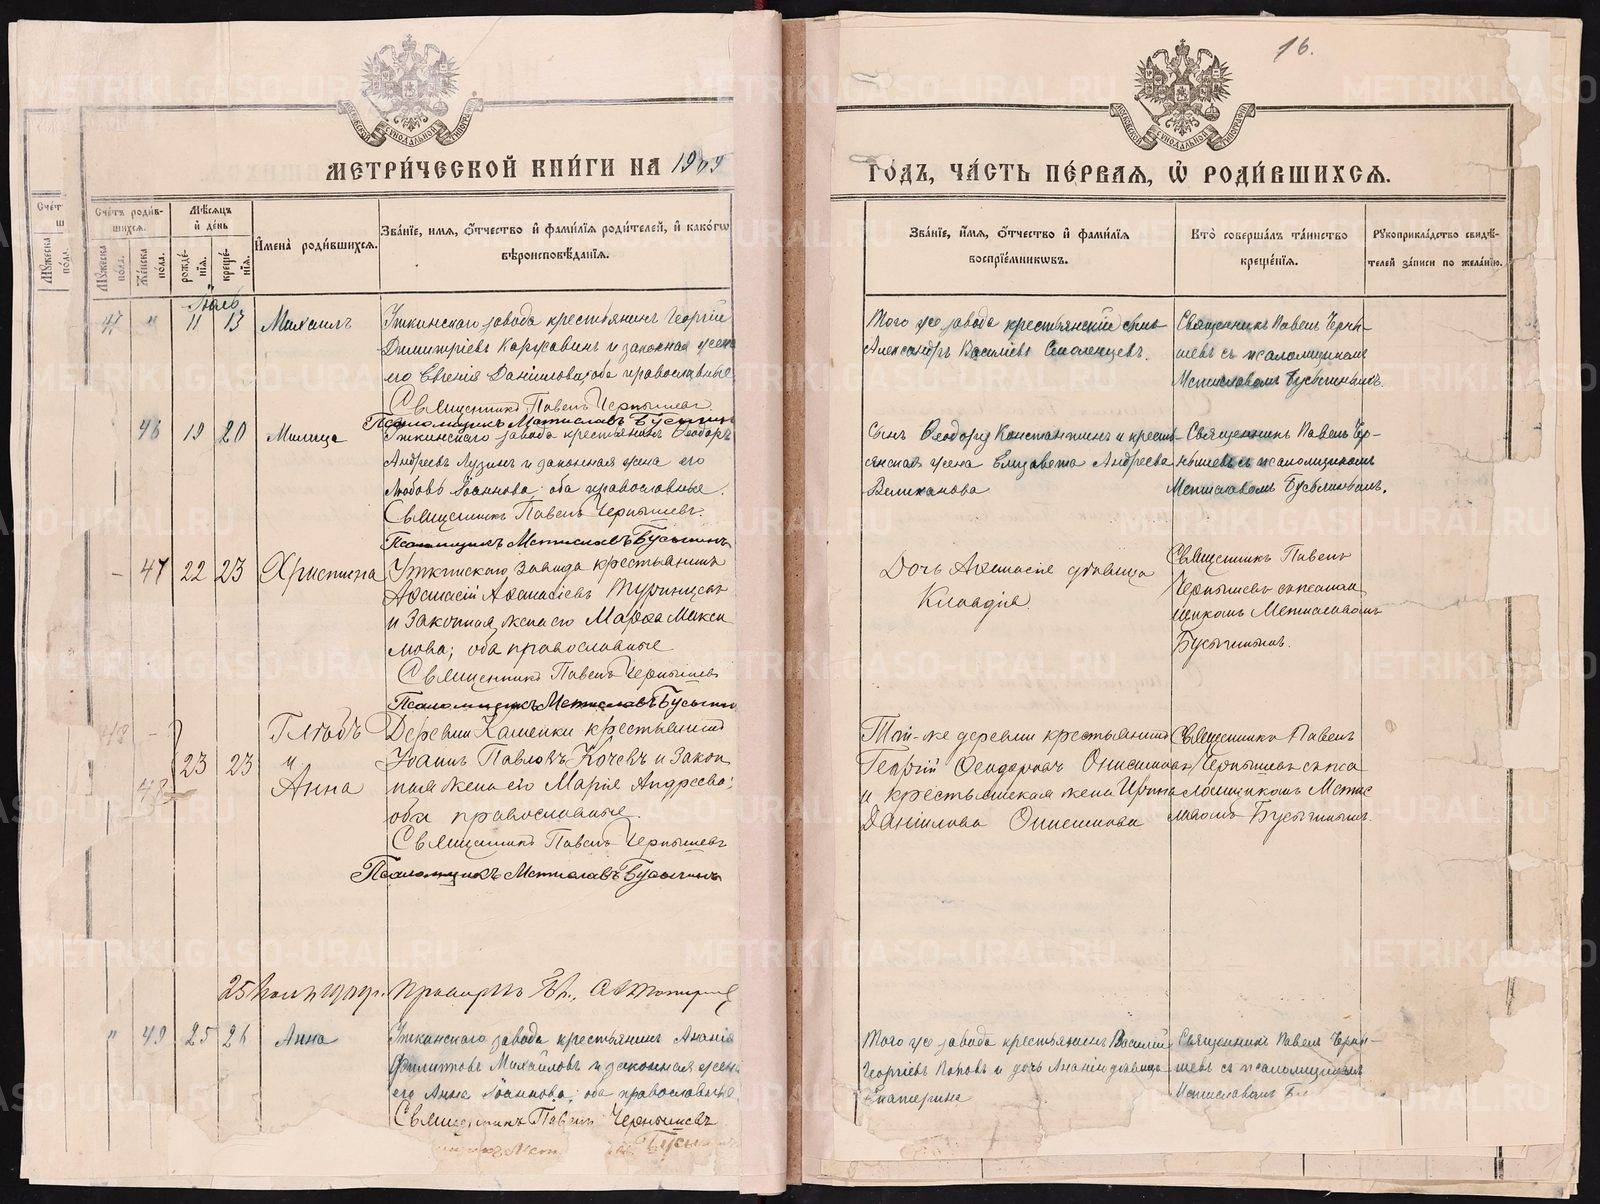 16.
МЕТРИ́ЧЕСКОЙ КНИ́ГИ НА 1909
ГО́ДЪ, ЧА́СТЬ ПЕ́РВАѦ, Ѽ РОДИ́ВШИХСѦ.
Сче́тъ роди́в-
шихсѧ.
Мѣ́сѧцъ
и҆ де́нь
Мꙋ́жеска по́ла.
Же́нска по́ла.
рожде́-
нїѧ.
креще́-
нїѧ.
И҆мена̀ роди́вшихсѧ.
Зва́нїе, и҆́мѧ, ѻ҆́тчество и҆ фами́лїѧ роди́телей, и҆ како́гѡ
вѣроисповѣ́данїѧ.
Зва́нїе, и҆́мѧ, ѻ҆́тчество и҆ фами́лїѧ
воспрїе́мникѡвъ.
Кто̀ соверша́лъ та́инство
креще́нїѧ.
Рꙋкоприкла́дство свидѣ́-
телей за́писи по жела́нїю.
Іюль
47 " 11 13 Михаилъ
Уткинскаго завода крестьянинъ Георгій
Димитріевъ Коржавинъ и законная жена
его Евгенія Даніилова; оба православные.
Священникъ Павелъ Чернышевъ.
Псаломщикъ Мстиславъ Бусыгинъ
Того же завода крестьянскій сынъ
Александръ Василіевъ Смоленцевъ.
Священникъ Павелъ Черны-
шевъ съ псаломщикомъ
Мстиславомъ Бусыгинымъ.
46 19 20 Милица
Уткинскаго завода крестьянинъ Ѳеодоръ
Андреевъ Лузинъ и законная жена его
Любовь Іоаннова; оба православные.
Священникъ Павелъ Чернышевъ.
Псаломщикъ Мстиславъ Бусыгинъ
Сынъ Ѳеодора Константинъ и кресть-
янская жена Елизавета Андреева
Великанова
Священникъ Павелъ Чер-
нышевъ съ псаломщикомъ
Мстиславомъ Бусыгинымъ.
- 47 22 23 Христина
Уткинскаго завода крестьянинъ
Аѳанасій Аѳанасіевъ
и законная жена его Марѳа Макси
мова; оба православные
Священникъ Павелъ Чернышевъ
Псаломщикъ Мстиславъ Бусыгинъ
Дочь Аѳанасія дѣвица
Клавдія.
Священникъ Павелъ
Чернышевъ съ псалом
щикомъ Мстиславомъ
Бусыгинымъ.
48 - 23 23 Глѣбъ
и
48 Анна
Деревни Каменки крестьянинъ
Іоаннъ Павловъ Кочевъ и закон
ная жена его Марія Андреева;
оба православные.
Священникъ Павелъ Чернышевъ
Псаломщикъ Мстиславъ Бусыгинъ
Той-же деревни крестьянинъ
Георгій Ѳеодоровъ Онисимовъ
и крестьянская жена Ирина
Даніилова Онисимова
Священникъ Павелъ
Чернышевъ съ пса
ломщикомъ Мстис
лавомъ Бусыгинымъ.
25 1909 г.
" 49 25 26 Анна
Уткинскаго завода крестьянинъ Ананія
Филипповъ Михайловъ и законная жена
его Анна Іоаннова; оба православные
Священникъ Павелъ Чернышевъ
Того же завода крестьянинъ Василій
Георгіевъ Поповъ и дочь Ананіи дѣвица
Екатерина
Священникъ Павелъ Черны-
шевъ съ псаломщикомъ
Мстиславомъ Б
METRIKI.GASO-URAL.RU